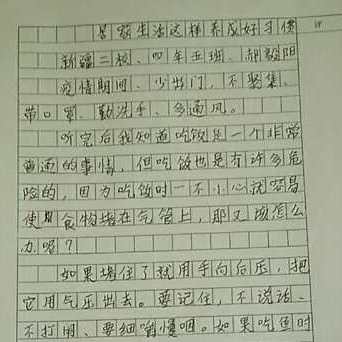 暑假生活这样养成好习惯
新疆二校、四年五班、郝朝阳
疫情期间、少出门，不聚集、
带口罩、勤洗手、多通风。
听完后我知道吃饭是一个非常
普通的事情，但吃饭也是有许多危
险的，因为吃饭时一不小心就容易
使食物堵在气管上，那又该怎么
办呢？
如果堵住了就用手向后压，把
它用气压出去。要记住，不说话、
不打闹、要细嚼慢咽。如果吃鱼时